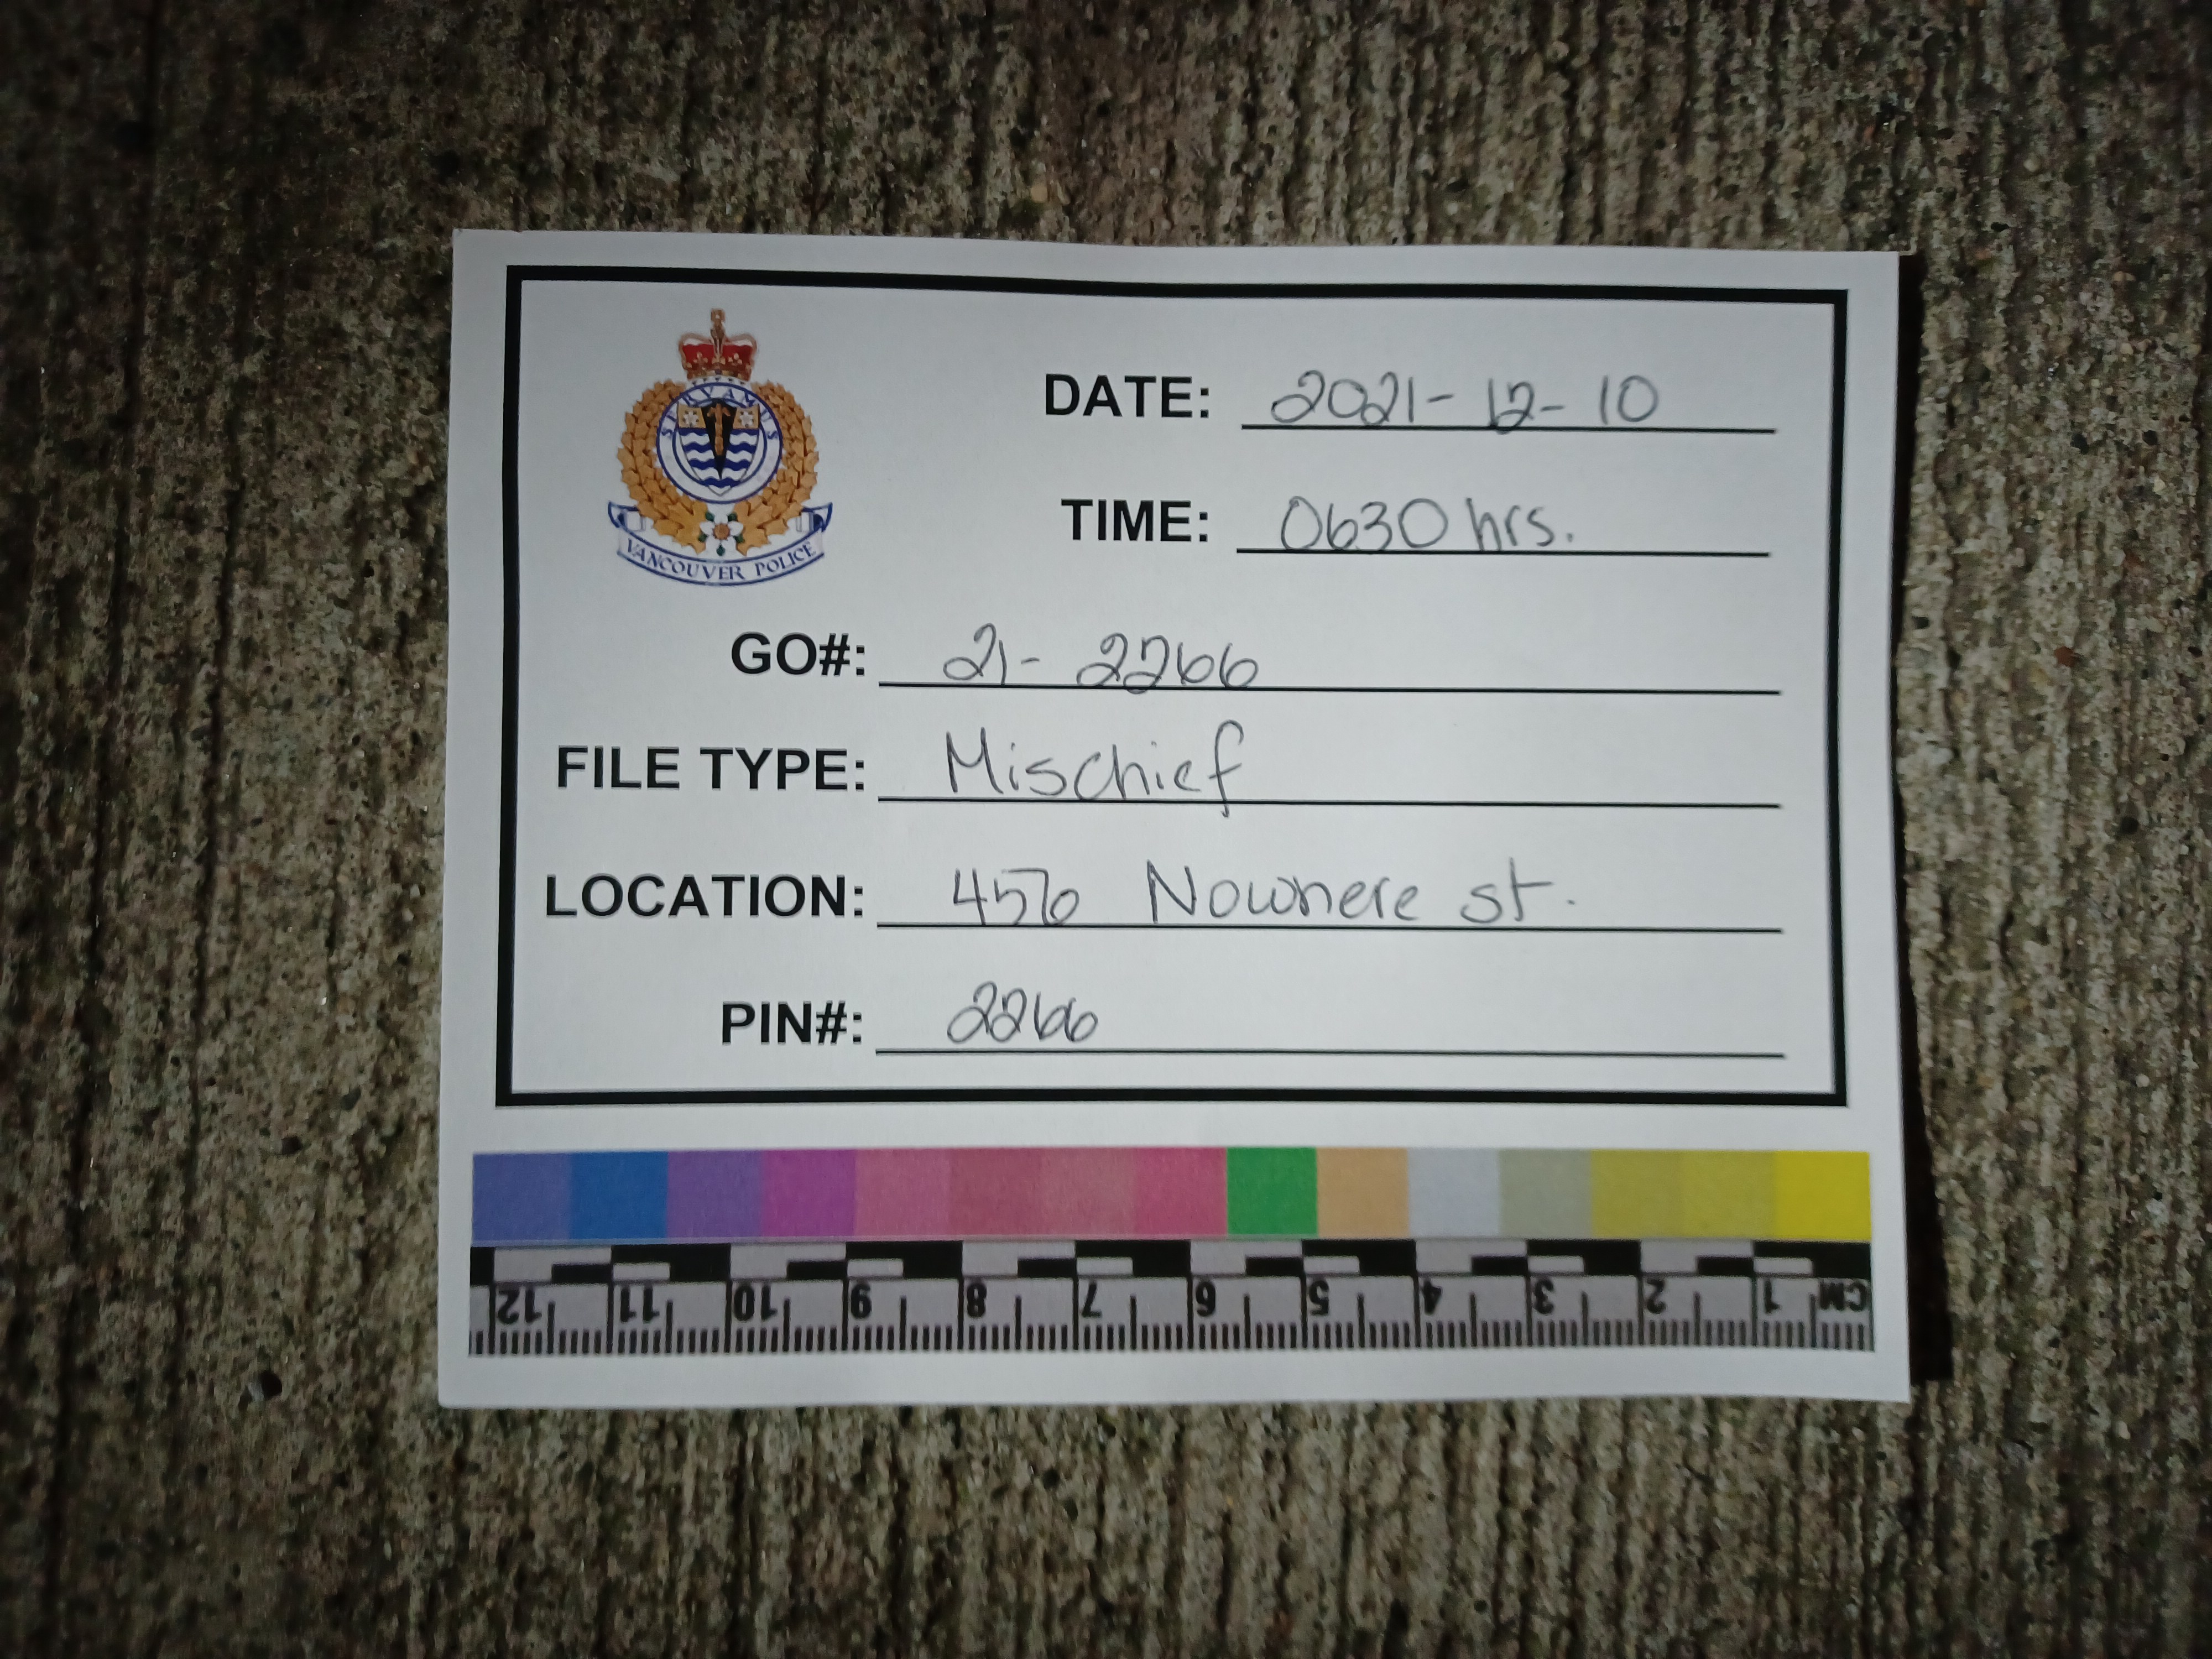 SERVAMUS
VANCOUVER POLICE
DATE: 2021-12-10
TIME: 0630 hrs.
GO#: 21-2266
FILE TYPE: Mischief
LOCATION: 456 Nowhere st.
PIN#: 2266
12 11 10 9 8 7 6 5 4 3 2 1 CM